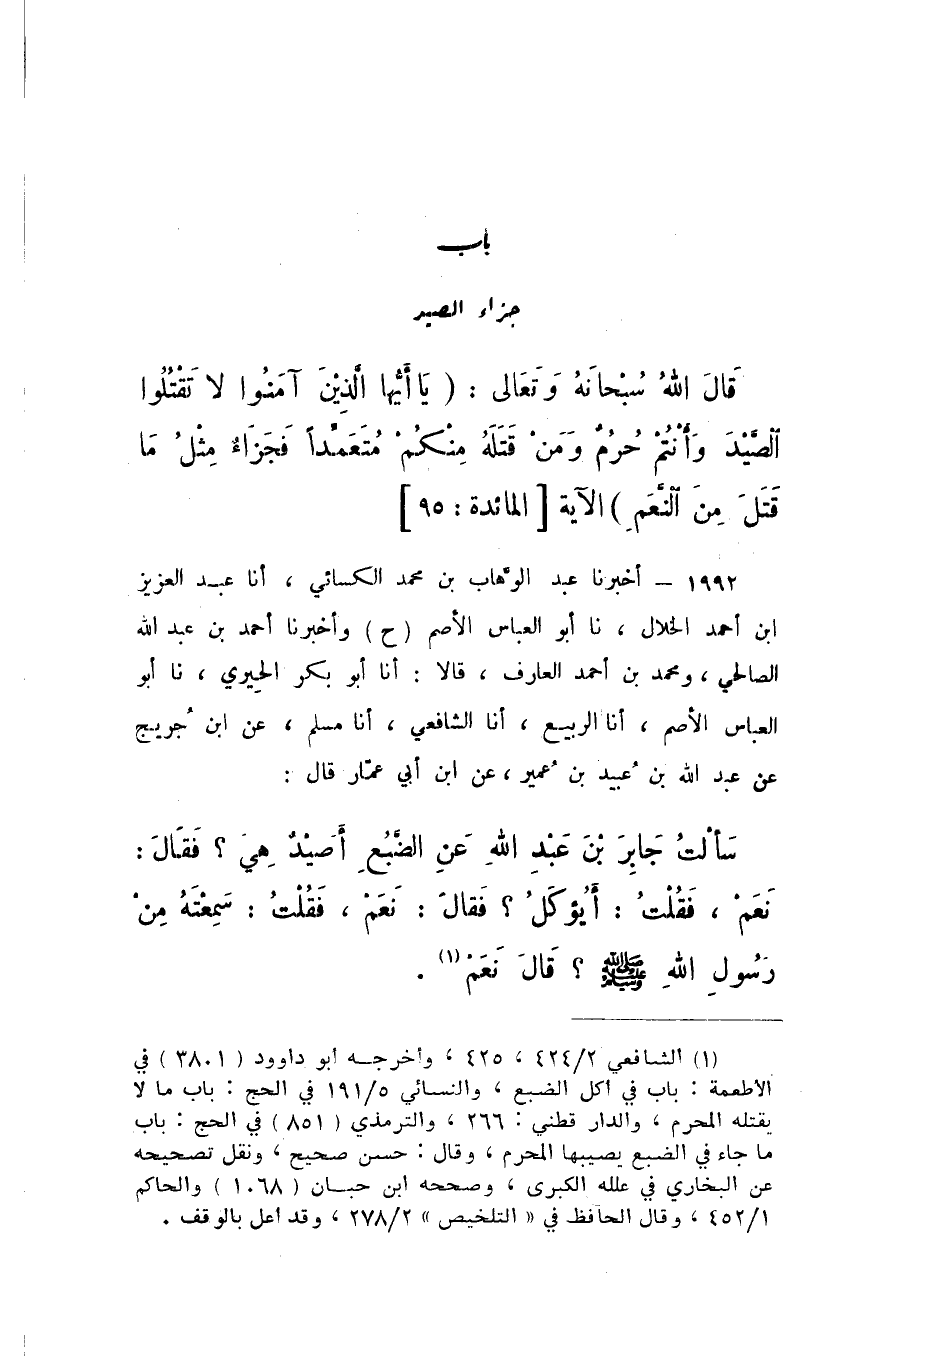 باب
جزاء الصيد
قَالَ اللهُ سُبْحَانَهُ وَتَعَالى : ( يَا أَيُّهَا الَّذِيْنَ آمَنُوا لا تَقْتُلُوا
الصَّيْدَ وَأَنْتُمْ حُرُمٌ وَمَنْ قَتَلَهُ مِنْكُمْ مُتَعَمِّدَاً فَجَزَاءٌ مِثْلُ مَا
قَتَلَ مِنَ النَّعَمِ ) الآية [ المائدة : ٩٥ ]
١٩٩٢ – أخبرنا عبد الوهّاب بن محمد الكسائي ، أنا عبد العزيز
ابن أحمد الخلال ، نا أبو العباس الأصم ( ح ) وأخبرنا أحمد بن عبد الله
الصالحي ، ومحمد بن أحمد العارف ، قالا : أنا أبو بكر الحِيري ، نا أبو
العباس الأصم ، أنا الربيع ، أنا الشافعي ، أنا مسلم ، عن ابن جُريج
عن عبد الله بن عُبيد بن عُمير ، عن ابن أبي عمّار قال :
سَأَلْتُ جَابِرَ بْنَ عَبْدِ اللهِ عَنِ الضَّبُعِ أَصَيْدٌ هِيَ ؟ فَقَالَ :
نَعَمْ ، فَقُلْتُ : أَيُؤكَلُ ؟ فَقالَ : نَعَمْ ، فَقُلْتُ : سَمِعْتَهُ مِنْ
رَسُولِ اللهِ ﷺ ؟ قَالَ نَعَمْ (١) .
(١) الشافعي ٤٢٤/٢ ، ٤٢٥ ، وأخرجه أبو داوود ( ٣٨٠١ ) في
الاطعمة : باب في أكل الضبع ، والنسائي ١٩١/٥ في الحج : باب ما لا
يقتله المحرم ، والدار قطني : ٢٦٦ ، والترمذي ( ٨٥١ ) في الحج : باب
ما جاء في الضبع يصيبها المحرم ، وقال : حسن صحيح ، ونقل تصحيحه
عن البخاري في علله الكبرى ، وصححه ابن حبان ( ١٠٦٨ ) والحاكم
٤٥٢/١ ، وقال الحافظ في « التلخيص » ٢٧٨/٢ ، وقد أعل بالوقف .